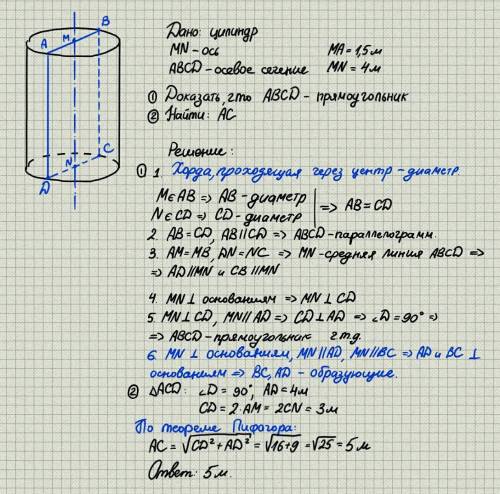 B
M
A
C
N
D
Дано: цилиндр
MN - ось MA = 1,5 м
ABCD - осевое сечение MN = 4 м
① Доказать, что ABCD - прямоугольник
② Найти: AC
Решение:
① 1. Хорда, проходящая через центр - диаметр.
M∈AB ⇒ AB - диаметр
N∈CD ⇒ CD - диаметр ⇒ AB = CD
2. AB=CD, AB∥CD ⇒ ABCD - параллелограмм.
3. AM=MB, DN=NC ⇒ MN - средняя линия ABCD ⇒
⇒ AD∥MN и CB∥MN
4. MN ⊥ основаниям ⇒ MN ⊥ CD
5. MN⊥CD, MN∥AD ⇒ CD⊥AD ⇒ ∠D = 90° ⇒
⇒ ABCD - прямоугольник ч.т.д.
6. MN ⊥ основаниям, MN∥AD, MN∥BC ⇒ AD и BC ⊥
основаниям ⇒ BC, AD - образующие.
② △ACD: ∠D = 90°, AD = 4 м
CD = 2·AM = 2CN = 3 м
По теореме Пифагора:
AC = √CD² + AD² = √16+9 = √25 = 5 м
Ответ: 5 м.